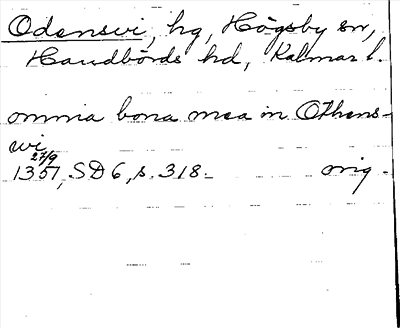 Odensvi, hg, Högsby sn,
Handbörds hd, Kalmar l.
omnia bona mea in Othens-
wi
27/9
1351, SD 6, s. 318. orig.